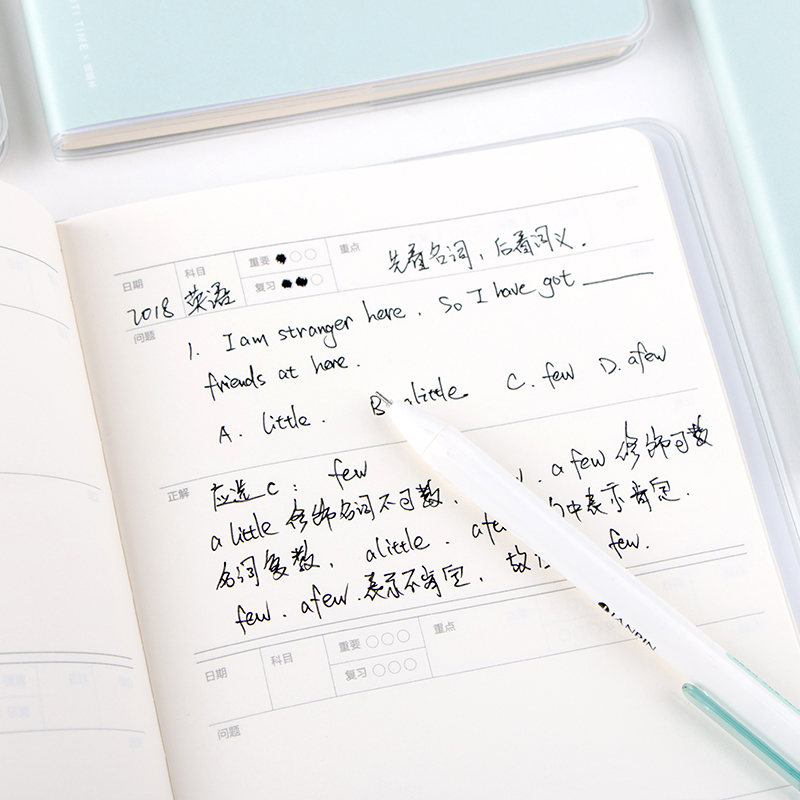 TI TIME
日期
科目
重要
复习
重点
先看名词，后看词义.
2018 英语
问题
1. I am stranger here. So I have got ______
friends at here.
A. little. B. little C. few D. afew
正解
应选C: few
a little 修饰名词不可数, . a few 修饰可数
名词复数, alittle. afew 中表示肯定.
few. afew 表示不肯定, 故 few.
日期
科目
重要
复习
重点
问题